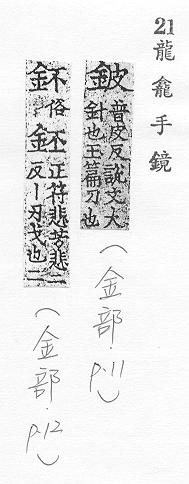 21龍龕手鏡
鈹 普皮反說文大針也玉篇刃也
(金部.p.11)
䤏俗鉟正符悲芳悲二反丨刃戈也二
(金部.p.12)